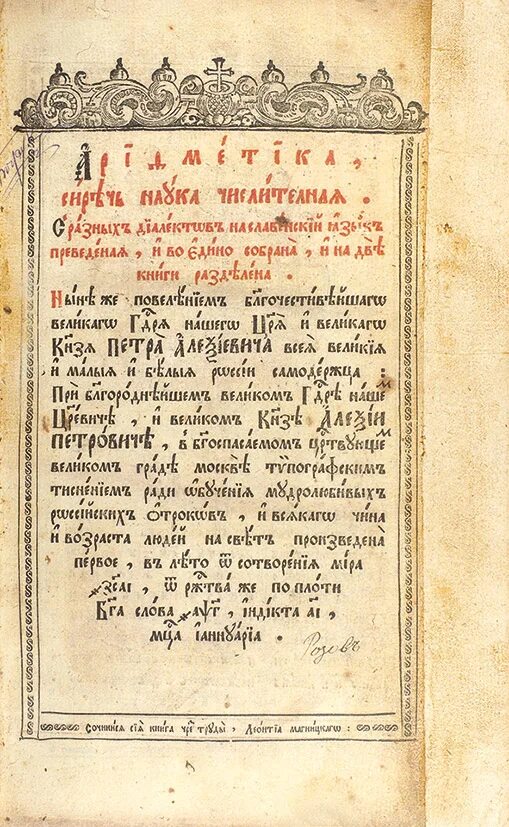 Арїѳме́тїка,
сирѣчь наука числителная.
Сразныхъ дїалектѡвъ наславенскїй ꙗзыкъ
преведеная, и во едино собрана, и на двѣ
книги раздѣлена.
Нынѣ же повелѣнїемъ бл҃гочестивѣйшагѡ
великагѡ Гдⷭ҇рѧ нашегѡ Цр҃ѧ и великагѡ
Кнѧзѧ Петра Алеѯїевича всеѧ великїѧ
и малыѧ и бѣлыѧ рѡссїи самодержца:
При бл҃городнѣйшемъ великомъ Гдⷭ҇рѣ нашеⷨ
Цр҃евичѣ, и великомъ Кнѧзѣ Алеѯїи
Петровичѣ, в бг҃оспасаемомъ црⷭ҇твующеⷨ
великомъ градѣ москвѣ тѷпографскимъ
тисненїемъ ради ѡбученїѧ мудролюбивыхъ
рѡссїйскихъ отрокѡвъ, и всѧкагѡ чина
и возраста людей на свѣтъ произведена
первое, въ лѣто ѿ сотворенїѧ мїра
҂зс҃аі, ѿ ржⷭ҇тва же по плоти
Бг҃а слова ҂аѱ҃г, індікта а҃і,
мцⷭ҇а іаннуарїа.
Розовъ
Сочинисѧ сїѧ книга чреⷥ труды, Леонтїа магницкагѡ: